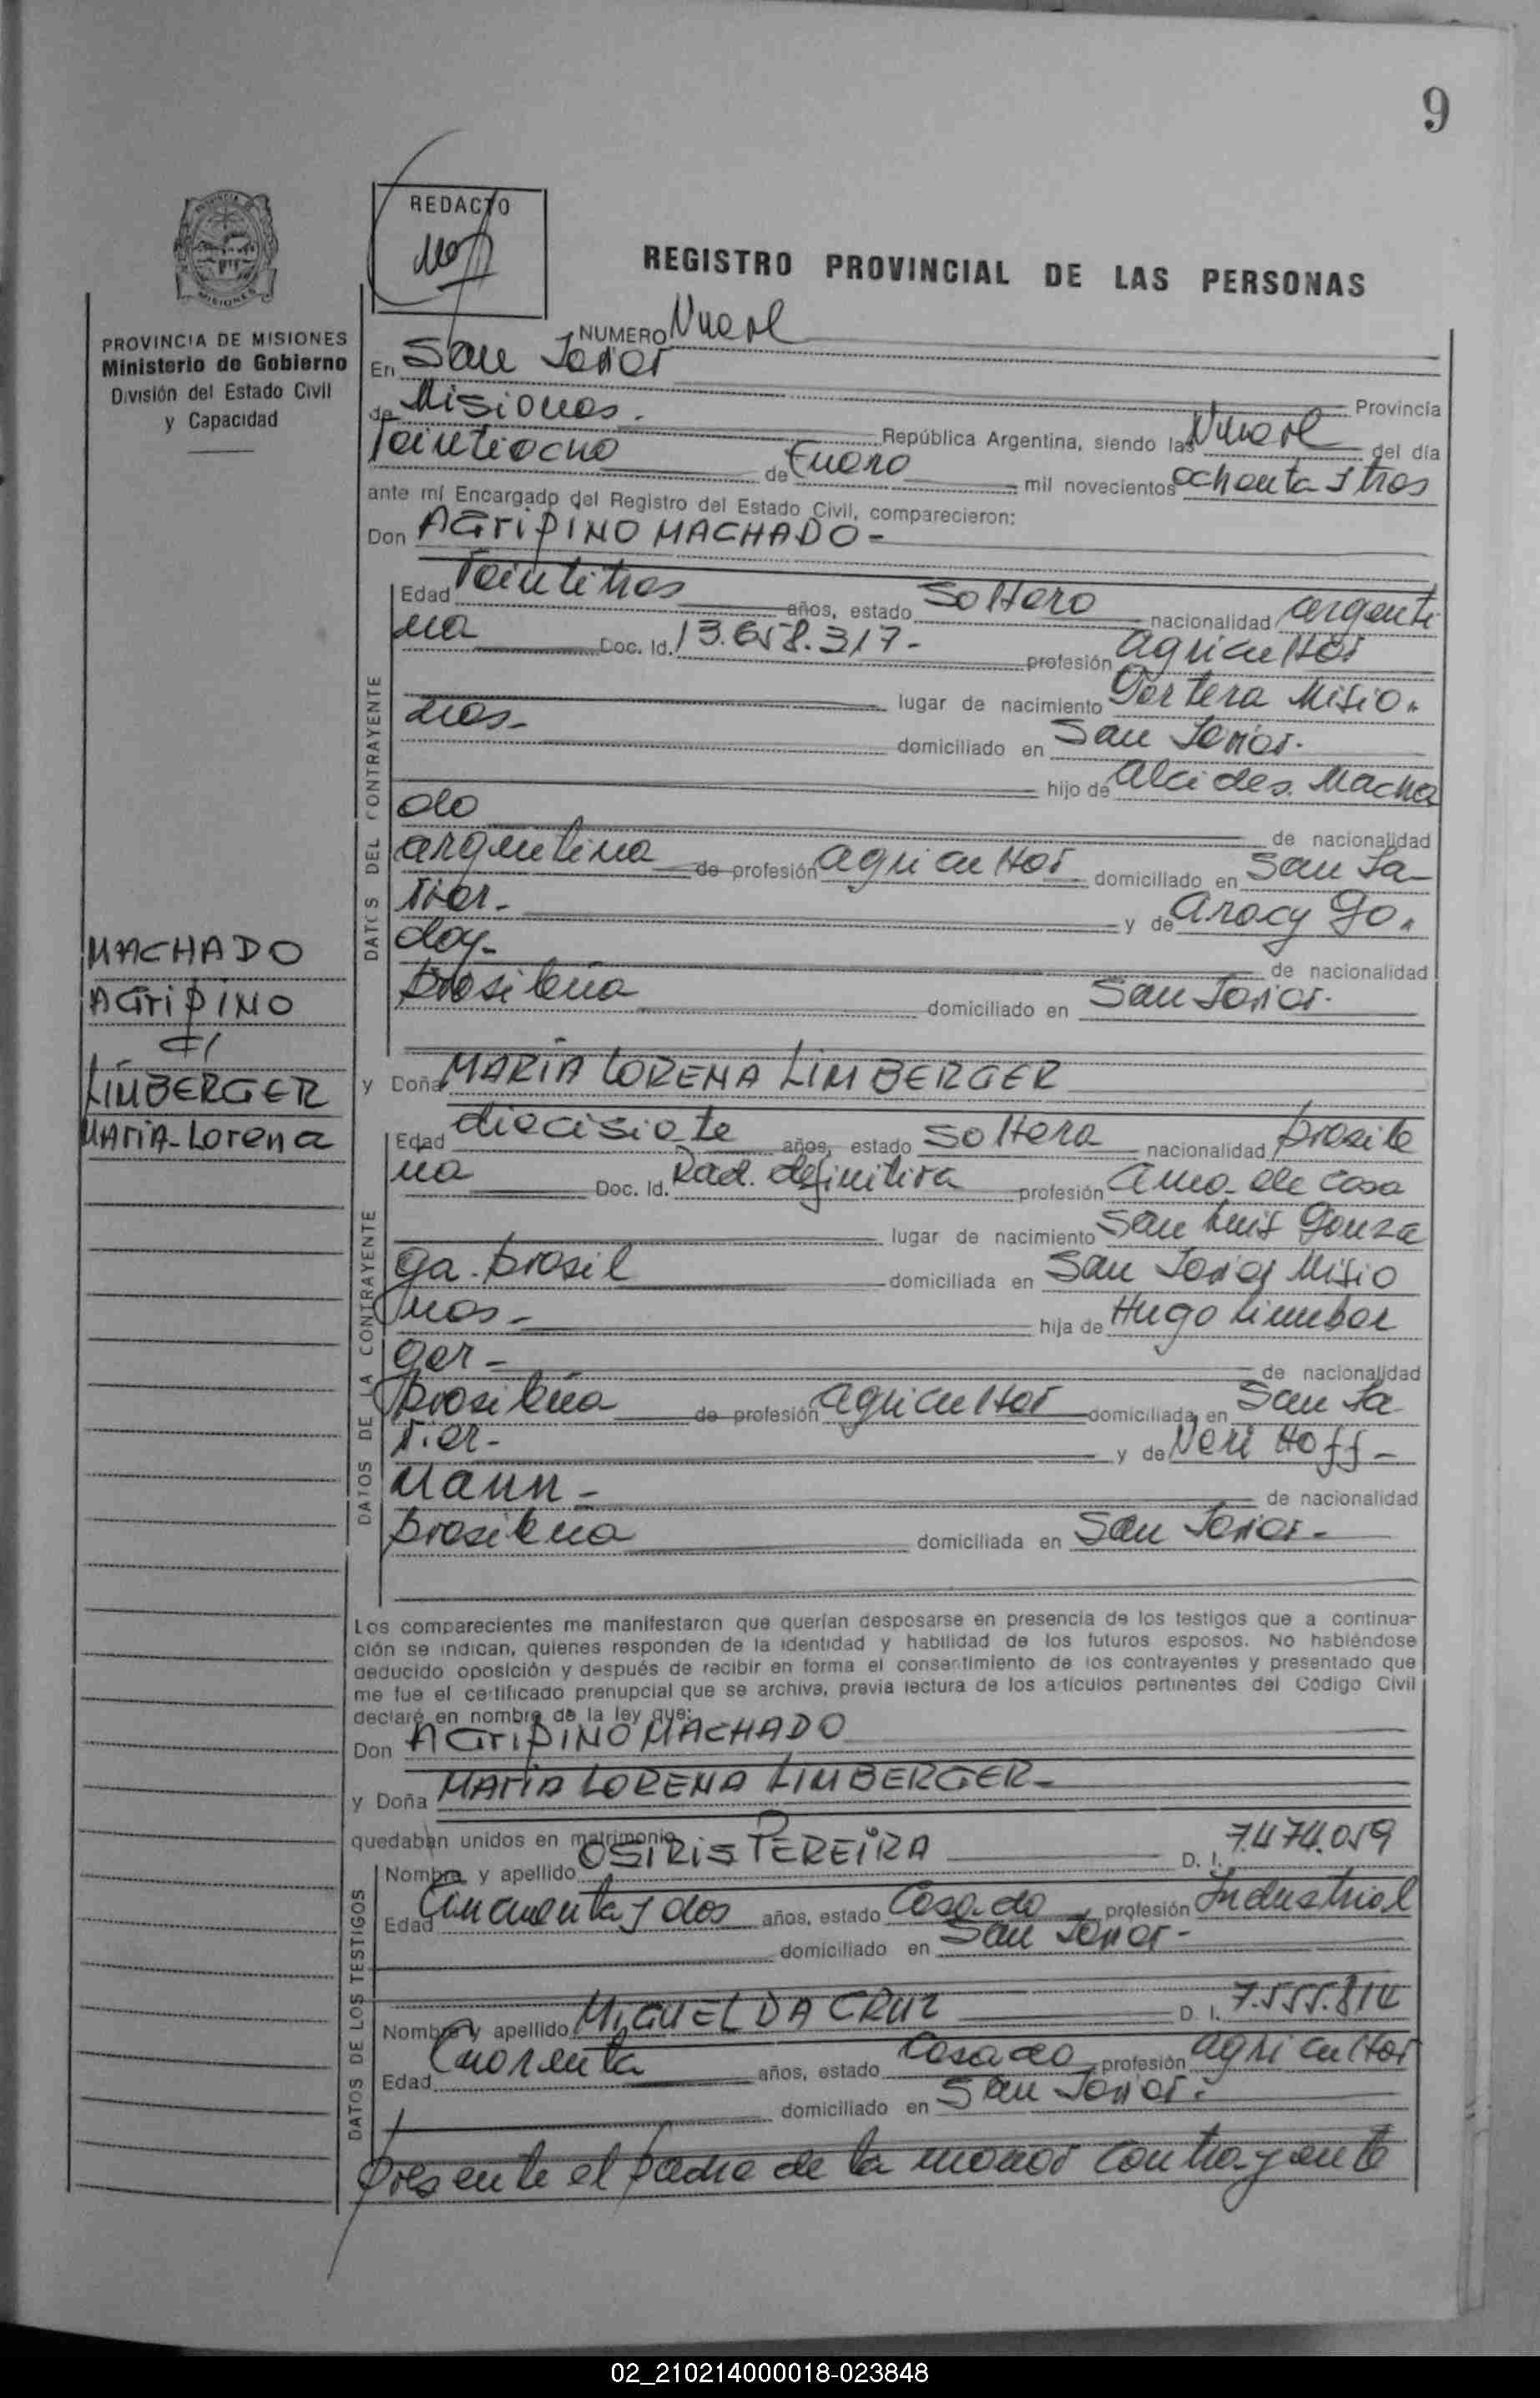 9
REDACTO
REGISTRO PROVINCIAL DE LAS PERSONAS
PROVINCIA DE MISIONES
Ministerio de Gobierno
División del Estado Civil
y Capacidad
NUMERO Nueve
En San Javier
Provincia
de Misiones.
República Argentina, siendo las Nueve del día
Veintiocho de Enero mil novecientos ochenta y tres
ante mí Encargado del Registro del Estado Civil, comparecieron:
Don AGRIPINO MACHADO -
Edad Veintitres años, estado Soltero nacionalidad argenti
na Doc. Id. 13.658.317 - profesión agricultor
lugar de nacimiento Portera Misio-
nes - domiciliado en San Javier.
hijo de Alcides Macha
do de nacionalidad
argentina de profesión agricultor domiciliado en San Ja-
vier - y de Aracy Go-
doy - de nacionalidad
brasileña domiciliado en San Javier.
MACHADO
AGRIPINO
c/
LIMBERGER
MARIA-Lorena
y Doña MARIA LORENA LIMBERGER
Edad diecisiete años, estado Soltera nacionalidad brasile
ña Doc. Id. Rad. definitiva profesión ama de casa
lugar de nacimiento San Luis Gonza
ga - brasil domiciliada en San Javier Misio
nes - hija de Hugo Limber
ger - de nacionalidad
brasileña de profesión agricultor domiciliada en San Ja-
vier - y de Neri Hoff-
mann - de nacionalidad
brasileña domiciliada en San Javier -
DATOS DEL CONTRAYENTE
DATOS DE LA CONTRAYENTE
Los comparecientes me manifestaron que querían desposarse en presencia de los testigos que a continua-
ción se indican, quienes responden de la identidad y habilidad de los futuros esposos. No habiéndose
deducido oposición y después de recibir en forma el consentimiento de los contrayentes y presentado que
me fue el certificado prenupcial que se archiva, previa lectura de los artículos pertinentes del Código Civil
declaré en nombre de la ley que:
Don AGRIPINO MACHADO
y Doña MARIA LORENA LIMBERGER -
quedaban unidos en matrimonio
Nombre y apellido OSIRIS PEREIRA D. I. 7.474.059
Edad Cincuenta y dos años, estado Casado profesión Industrial
domiciliado en San Javier -
Nombre y apellido MIGUEL DA CRUZ D. I. 7.555.814
Edad Cuarenta años, estado Casado profesión agricultor
domiciliado en San Javier.
DATOS DE LOS TESTIGOS
Presente el padre de la menor contrayente
02_210214000018-023848